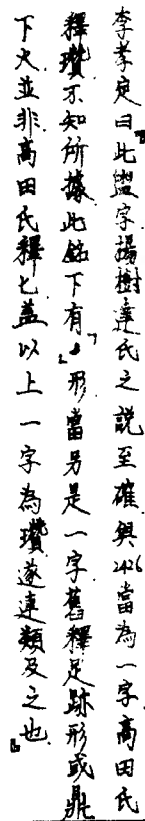 李孝定曰「此盥字楊樹達氏之説至確與2426當為一字高田氏
釋瓚不知所據此銘下有「」形當另是一字舊釋足跡形或鼎
下火並非高田氏釋匕蓋以上一字為瓚遂連類及之也」